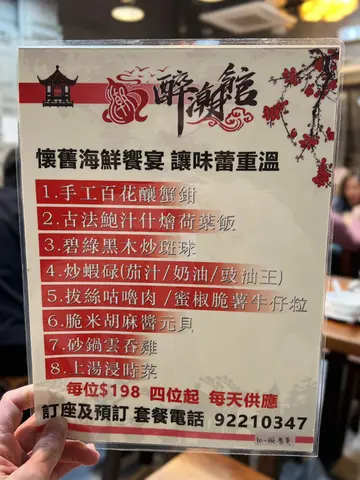 醉潮館
懷舊海鮮饗宴 讓味蕾重溫
1.手工百花釀蟹鉗
2.古法鮑汁什燴荷葉飯
3.碧綠黑木炒斑球
4.炒蝦碌(茄汁/奶油/豉油王)
5.拔絲咕嚕肉/蜜椒脆薯牛仔粒
6.脆米胡麻醬元貝
7.砂鍋雲吞雞
8.上湯浸時菜
每位$198 四位起 每天供應
訂座及預訂 套餐電話 92210347